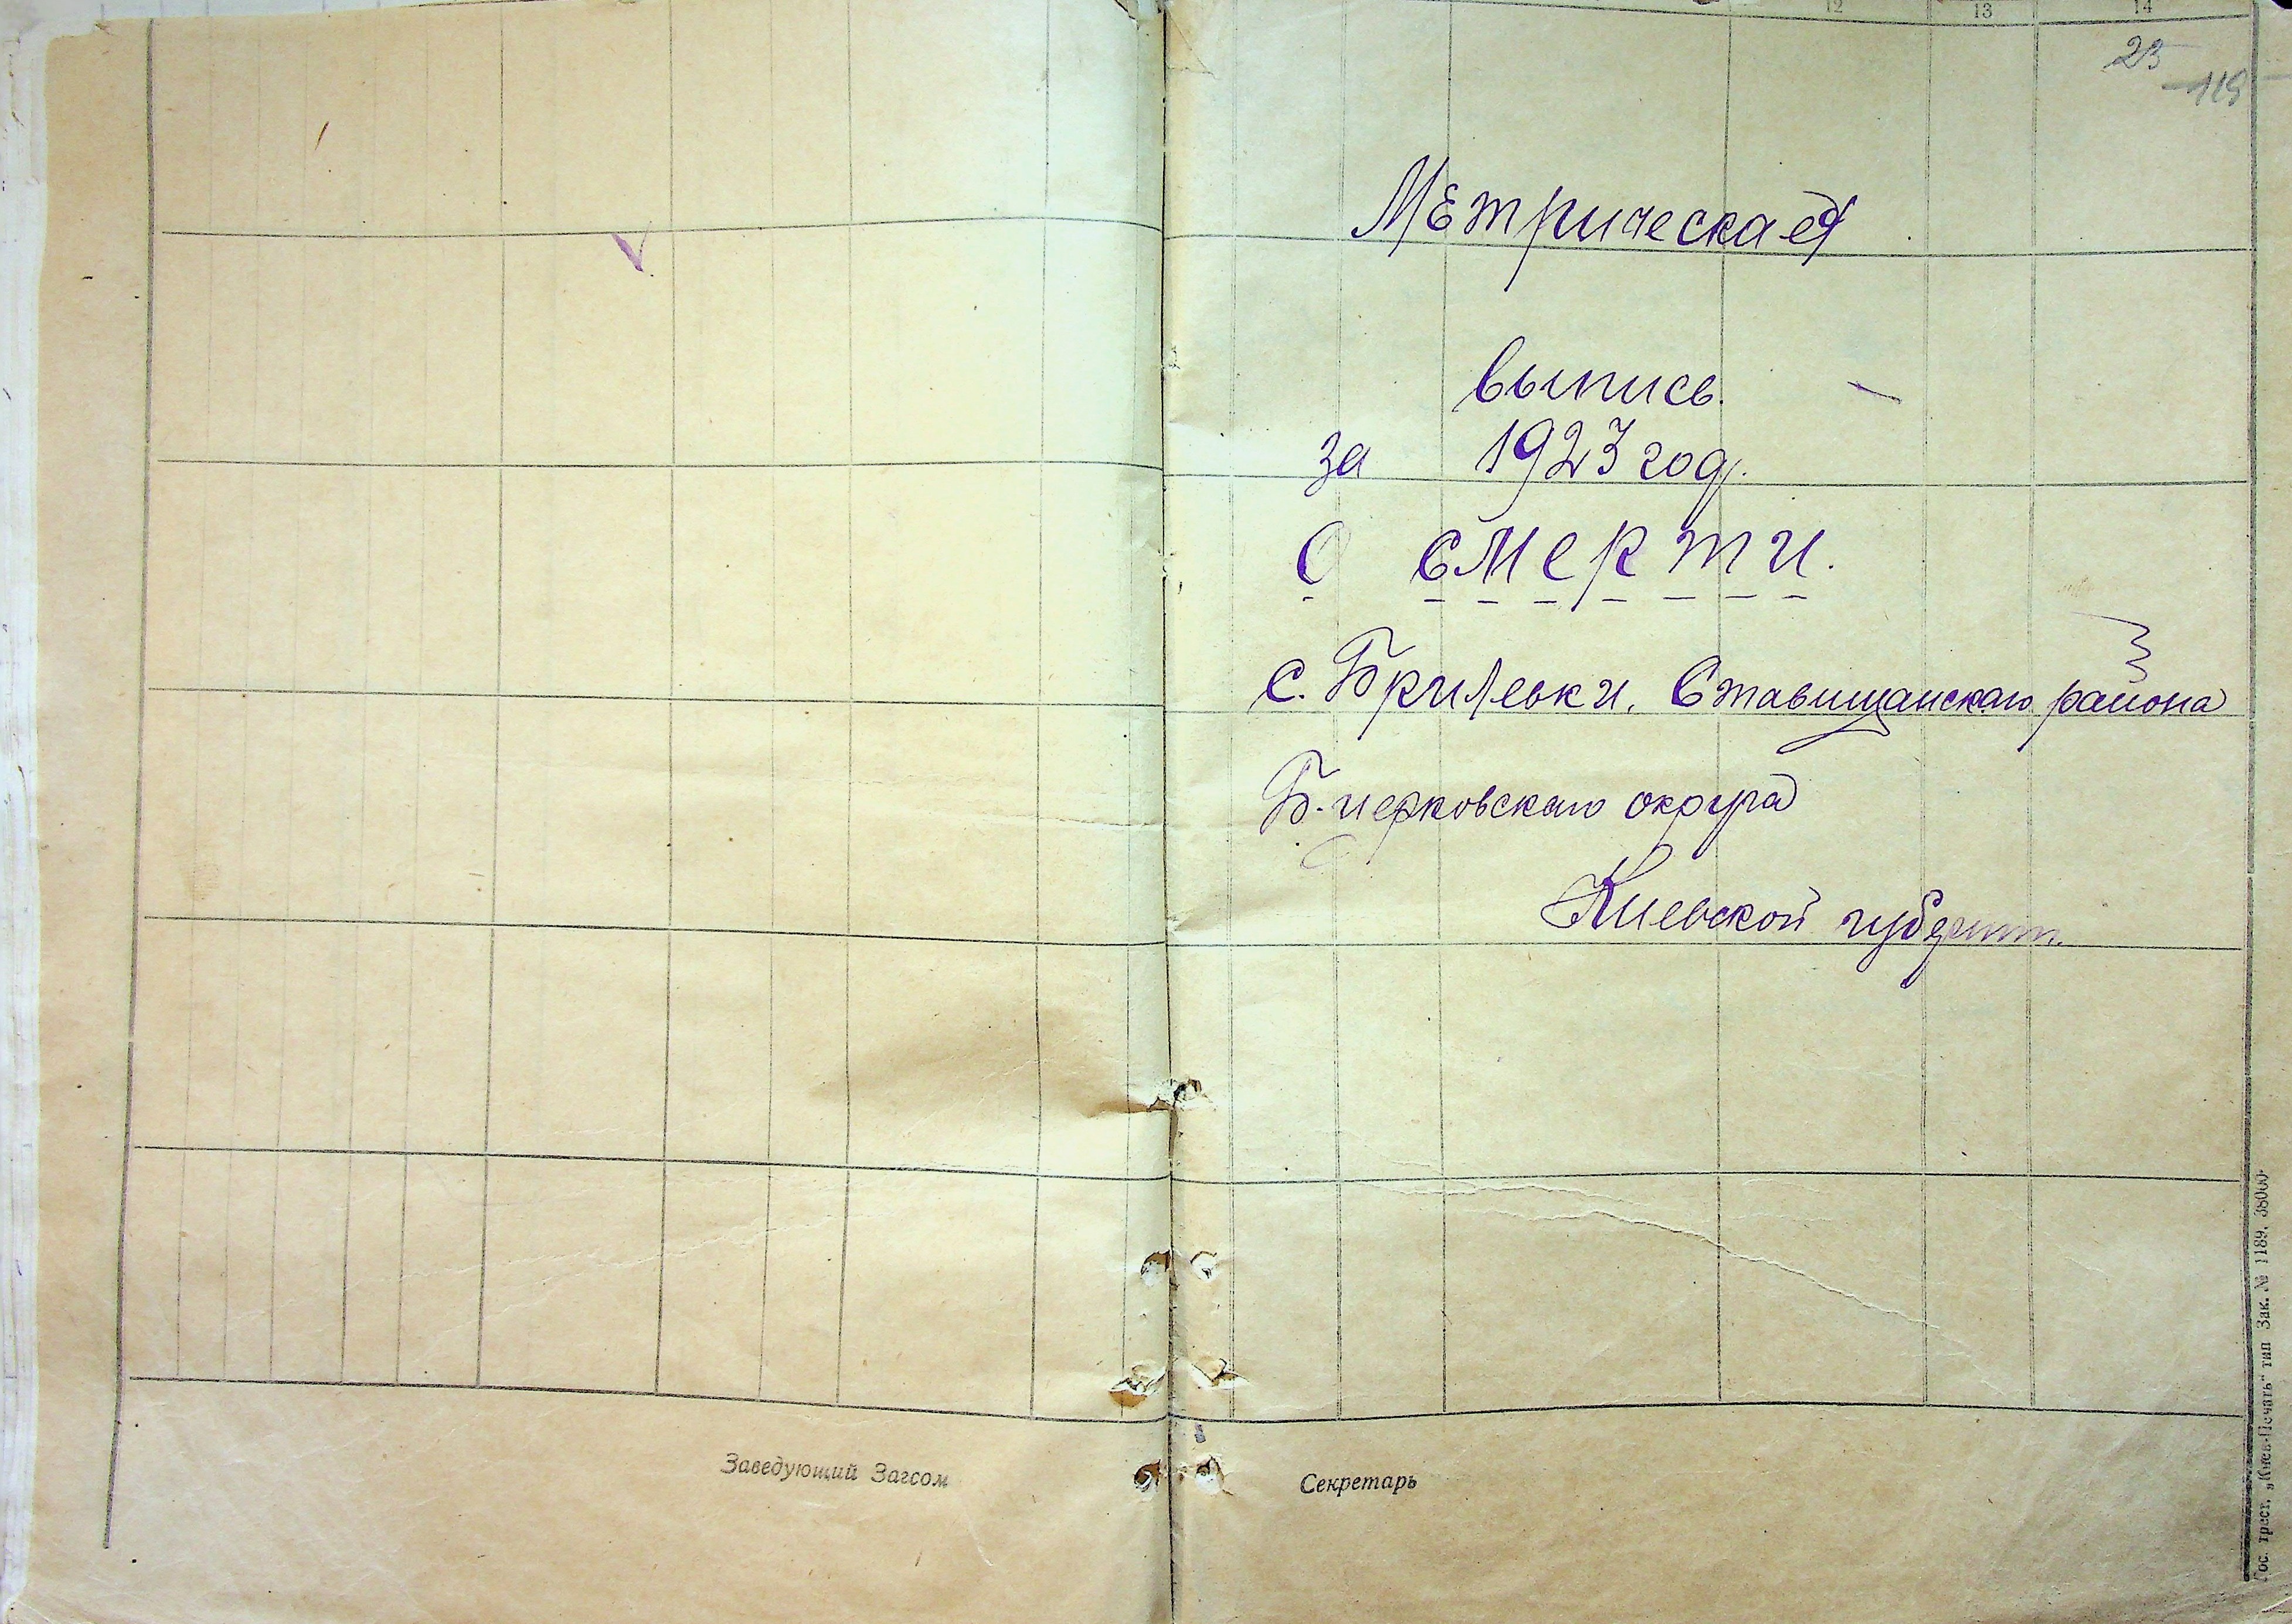 12 13 14
23
119
Метрическая
выпись.
за 1923 год.
О смерти.
с. Брилевки. Ставищанскаго района
Б. церковскаго округа
Киевской губернии.
Заведующий Загсом
Секретарь
Гос. трест. „Киев-Печать" тип Зак. № 1189. 38000.